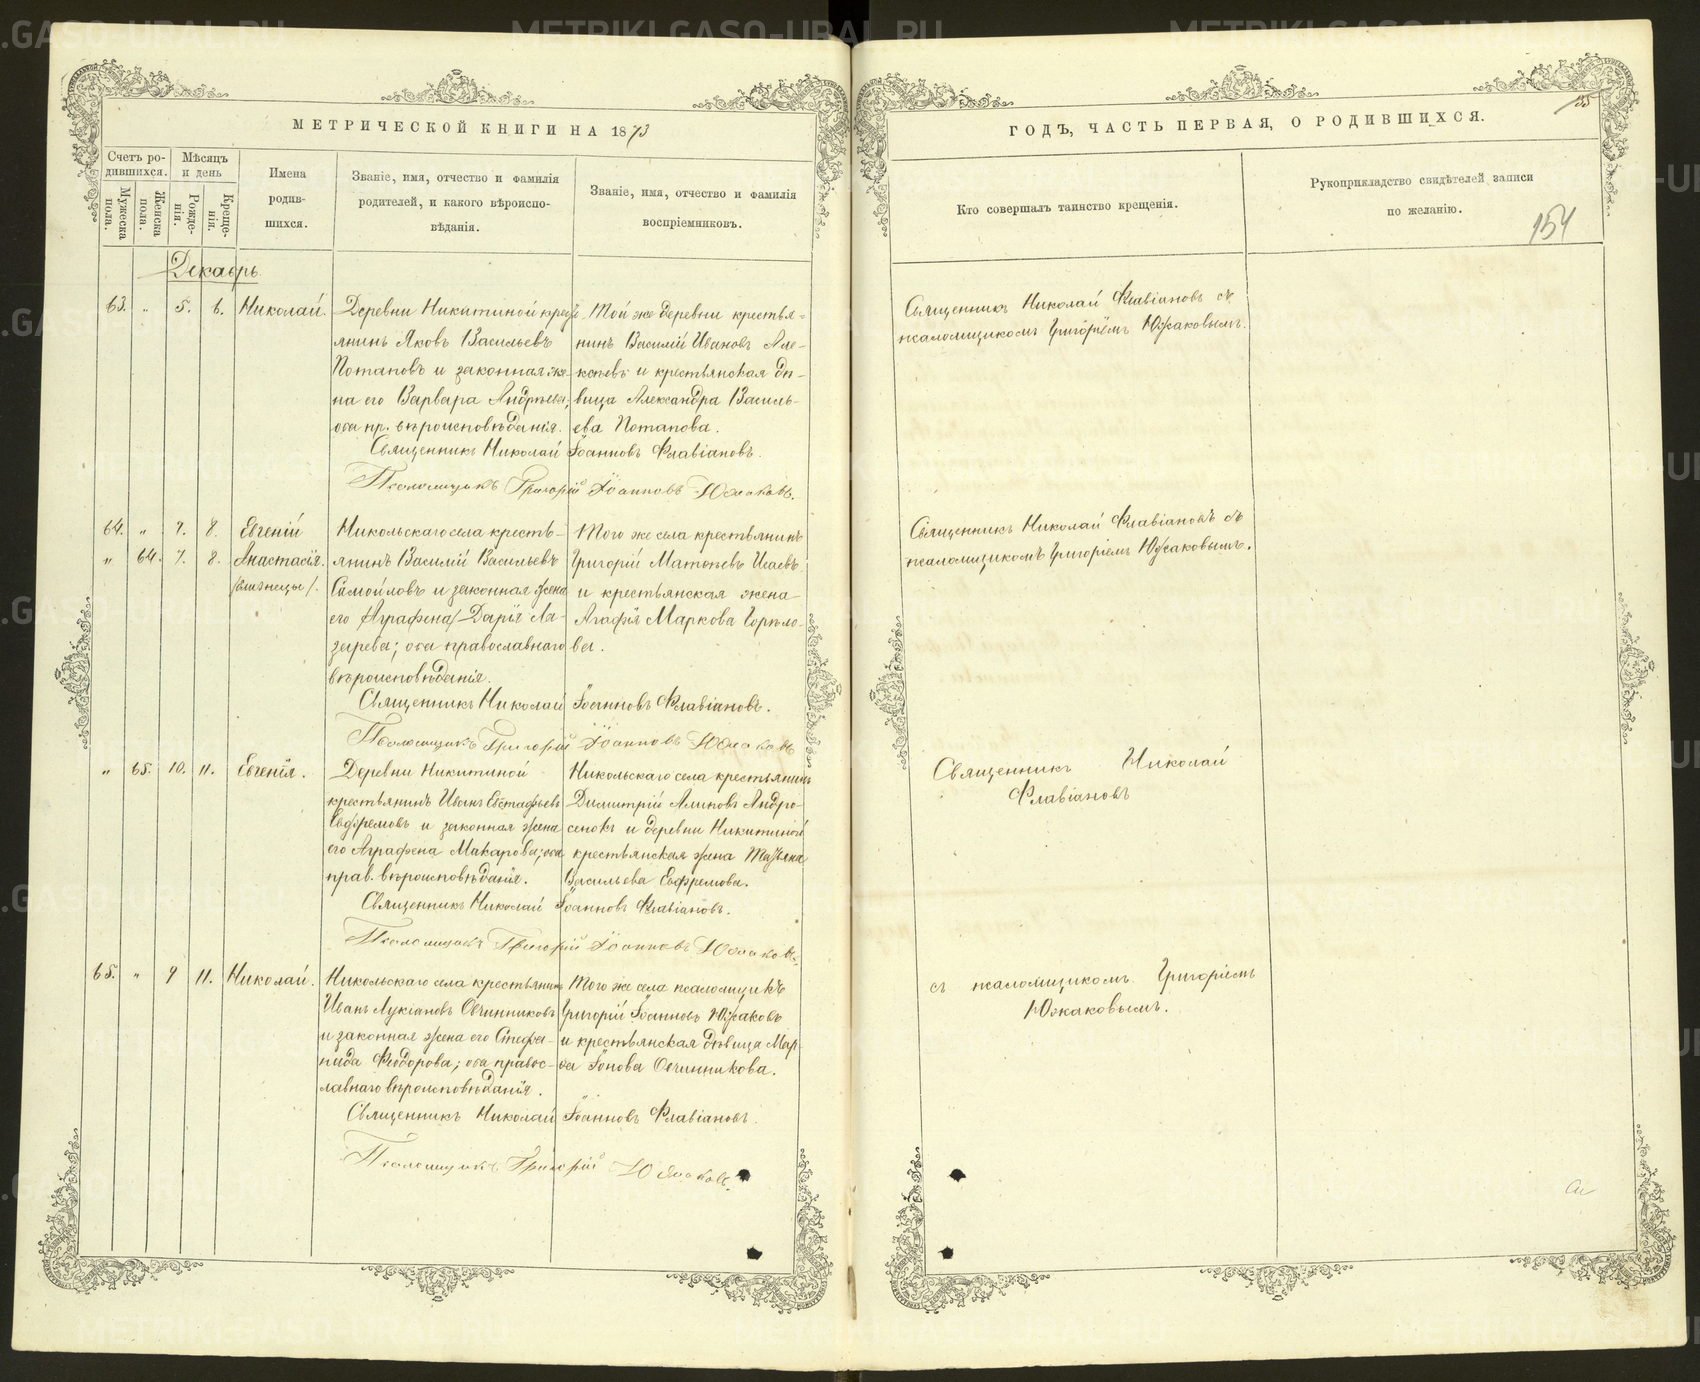 МЕТРИЧЕСКОЙ КНИГИ НА 1873
ГОДЪ, ЧАСТЬ ПЕРВАЯ, О РОДИВШИХСЯ.
35
154
Счетъ ро-
дившихся.
Мужеска
пола.
Женска
пола.
Мѣсяцъ
и день
Рожде-
нія.
Креще-
нія.
Имена
родив-
шихся.
Званіе, имя, отчество и фамилія
родителей, и какого вѣроиспо-
вѣданія.
Званіе, имя, отчество и фамилія
воспріемниковъ.
Кто совершалъ таинство крещенія.
Рукоприкладство свидѣтелей записи
по желанію.
Декабрь
63. „ 5. 6. Николай.
Деревни Никитиной крес
янинъ Яковъ Васильевъ
Потаповъ и законная же-
на его Варвара Андреева;
оба пр. вѣроисповѣданія.
Той же деревни крестья-
нинъ Василій Ивановъ Але-
ксѣевъ и крестьянская дѣ-
вица Александра Василь-
ева Потапова.
Священникъ Николай Іоанновъ Флавіановъ.
Псаломщикъ Григорій Іоанновъ Южаковъ.
Священникъ Николай Флавіановъ съ
псаломщикомъ Григоріемъ Южаковымъ.
64. „ 7. 8. Евгеній
„ 64. 7. 8. Анастасія.
/близнецы/.
Никольскаго села кресть-
янинъ Василій Васильевъ
Самойловъ и законная жена
его /Аграфена/ Дарія Ла-
зарева; оба православнаго
вѣроисповѣданія.
Того же села крестьянинъ
Григорій Матѳеевъ Исаевъ
и крестьянская жена
Агафія Маркова Горѣло-
ва.
Священникъ Николай Іоанновъ Флавіановъ.
Псаломщикъ Григорій Іоанновъ Южаковъ
Священникъ Николай Флавіановъ съ
псаломщикомъ Григоріемъ Южаковымъ.
„ 65. 10. 11. Евгенія.
Деревни Никитиной
крестьянинъ Иванъ Евстафьевъ
Евфремовъ и законная жена
его Аграфена Макарова; оба
прав. вѣроисповѣданія.
Никольскаго села крестьянинъ
Димитрій Алиповъ Андро-
сенокъ и деревни Никитиной
крестьянская жена Татьяна
Васильева Евфремова.
Священникъ Николай Іоанновъ Флавіановъ.
Псаломщикъ Григорій Іоанновъ Южаковъ.
Священникъ Николай
Флавіановъ
65. „ 9 11. Николай.
Никольскаго села крестьянинъ
Иванъ Лукіановъ Овчинниковъ
и законная жена его Стефа-
нида Ѳеодорова; оба правос-
лавнаго вѣроисповѣданія.
Того же села псаломщикъ
Григорій Іоанновъ Южаковъ
и крестьянская дѣвица Мар
ѳа Іонова Овчинникова.
Священникъ Николай Іоанновъ Флавіановъ.
Псаломщикъ Григорій Южаковъ.
съ псаломщикомъ Григоріемъ
Южаковымъ.
METRIKI.GASO-URAL.RU